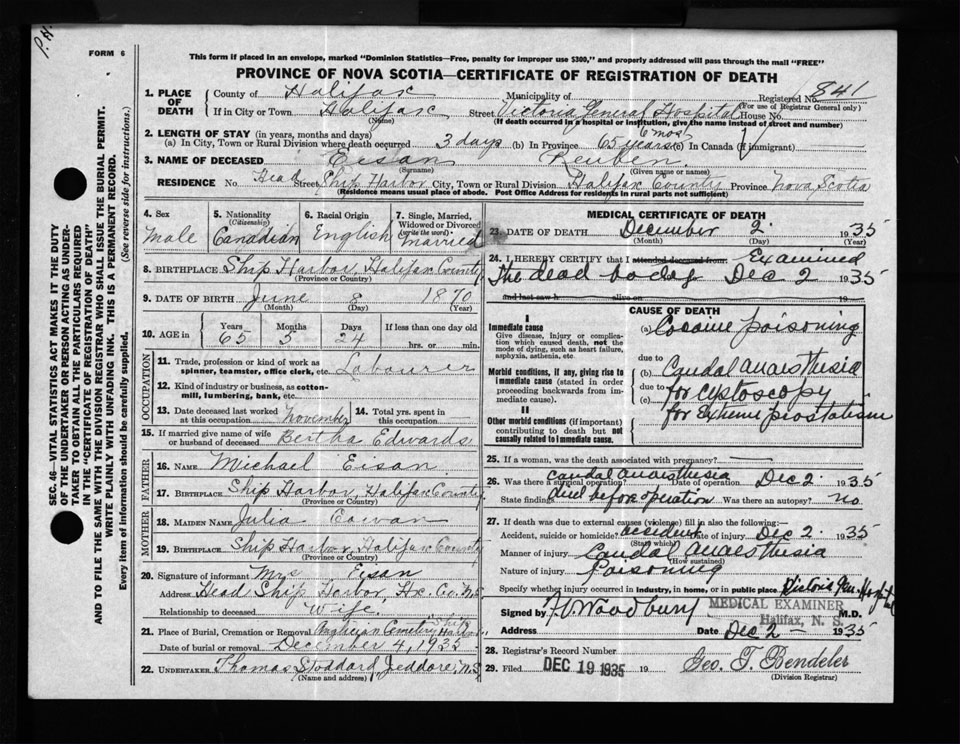 P.H.
FORM 6
This form if placed in an envelope, marked "Dominion Statistics—Free, penalty for improper use $300," and properly addressed will pass through the mail "FREE"
PROVINCE OF NOVA SCOTIA—CERTIFICATE OF REGISTRATION OF DEATH
SEC. 46—VITAL STATISTICS ACT MAKES IT THE DUTY
OF THE UNDERTAKER OR PERSON ACTING AS UNDER-
TAKER TO OBTAIN ALL THE PARTICULARS REQUIRED
IN THE "CERTIFICATE OF REGISTRATION OF DEATH"
AND TO FILE THE SAME WITH THE DIVISION REGISTRAR WHO SHALL ISSUE THE BURIAL PERMIT.
WRITE PLAINLY WITH UNFADING INK. THIS IS A PERMANENT RECORD.
Every item of information should be carefully supplied. (See reverse side for instructions.)
1. PLACE OF DEATH
County of Halifax Municipality of Registered No. 841
(For use of Registrar General only)
If in City or Town Halifax Street Victoria General Hospital House No.
(Name) (If death occurred in a hospital or institution, give the name instead of street and number)
2. LENGTH OF STAY (in years, months and days)
(a) In City, Town or Rural Division where death occurred 3 days (b) In Province 65 years 6 mos (c) In Canada (if immigrant)
3. NAME OF DECEASED Eisan Reuben
(Surname) (Given name or names)
RESIDENCE No Head Street Ship Harbor City, Town or Rural Division Halifax County Province Nova Scotia
(Residence means usual place of abode. Post Office Address for residents in rural parts not sufficient)
4. Sex Male
5. Nationality (Citizenship) Canadian
6. Racial Origin English
7. Single, Married, Widowed or Divorced (write the word) Married
8. BIRTHPLACE Ship Harbor, Halifax County
(Province or Country)
9. DATE OF BIRTH June 8 1870
(Month) (Day) (Year)
10. AGE in Years 65 Months 5 Days 24 If less than one day old
hrs. or min.
OCCUPATION
11. Trade, profession or kind of work as
spinner, teamster, office clerk, etc. Labourer
12. Kind of industry or business, as cotton-
mill, lumbering, bank, etc.
13. Date deceased last worked at this occupation November
14. Total yrs. spent in this occupation
15. If married give name of wife
or husband of deceased Bertha Edwards
FATHER
16. NAME Michael Eisan
17. BIRTHPLACE Ship Harbor, Halifax County
(Province or Country)
MOTHER
18. MAIDEN NAME Julia
19. BIRTHPLACE Ship Harbor, Halifax County
(Province or Country)
20. Signature of informant Mrs Eisan
Address Head Ship Harbor Hx. Co. N.S
Relationship to deceased Wife
21. Place of Burial, Cremation or Removal Anglican Cemetery Ship Harbor
Date of burial or removal December 4, 1935
22. UNDERTAKER Thomas Stoddard, Jeddore, N.S
(Name and address)
MEDICAL CERTIFICATE OF DEATH
23. DATE OF DEATH December 2 1935
(Month) (Day) (Year)
24. I HEREBY CERTIFY that I attended deceased from Examined
The dead body Dec 2 1935
and last saw h alive on 19
CAUSE OF DEATH
I
Immediate cause
Give disease, injury or complication which caused death, not the mode of dying, such as heart failure, asphyxia, asthenia, etc.
Morbid conditions, if any, giving rise to immediate cause (stated in order proceeding backwards from immediate cause).
II
Other morbid conditions (if important) contributing to death but not causally related to immediate cause.
(a) Cocaine poisoning
due to
(b) Caudal anaesthesia
due to for cystoscopy
(c) for Extreme prostatism
25. If a woman, was the death associated with pregnancy? —
26. Was there a surgical operation? caudal anaesthesia Date of operation Dec 2 1935
State findings died before operation Was there an autopsy? no
27. If death was due to external causes (violence) fill in also the following:
Accident, suicide or homicide? accident Date of injury Dec 2 1935
(State which)
Manner of injury Caudal anaesthesia
(How sustained)
Nature of injury Poisoning
Specify whether injury occurred in industry, in home, or in public place Victoria Gen. Hospital
Signed by Woodbury M.D.
MEDICAL EXAMINER
Halifax, N. S.
Address Date Dec 2 — 1935
28. Registrar's Record Number
29. Filed DEC 19 1935 19 Geo. T. Bendeler
(Division Registrar)